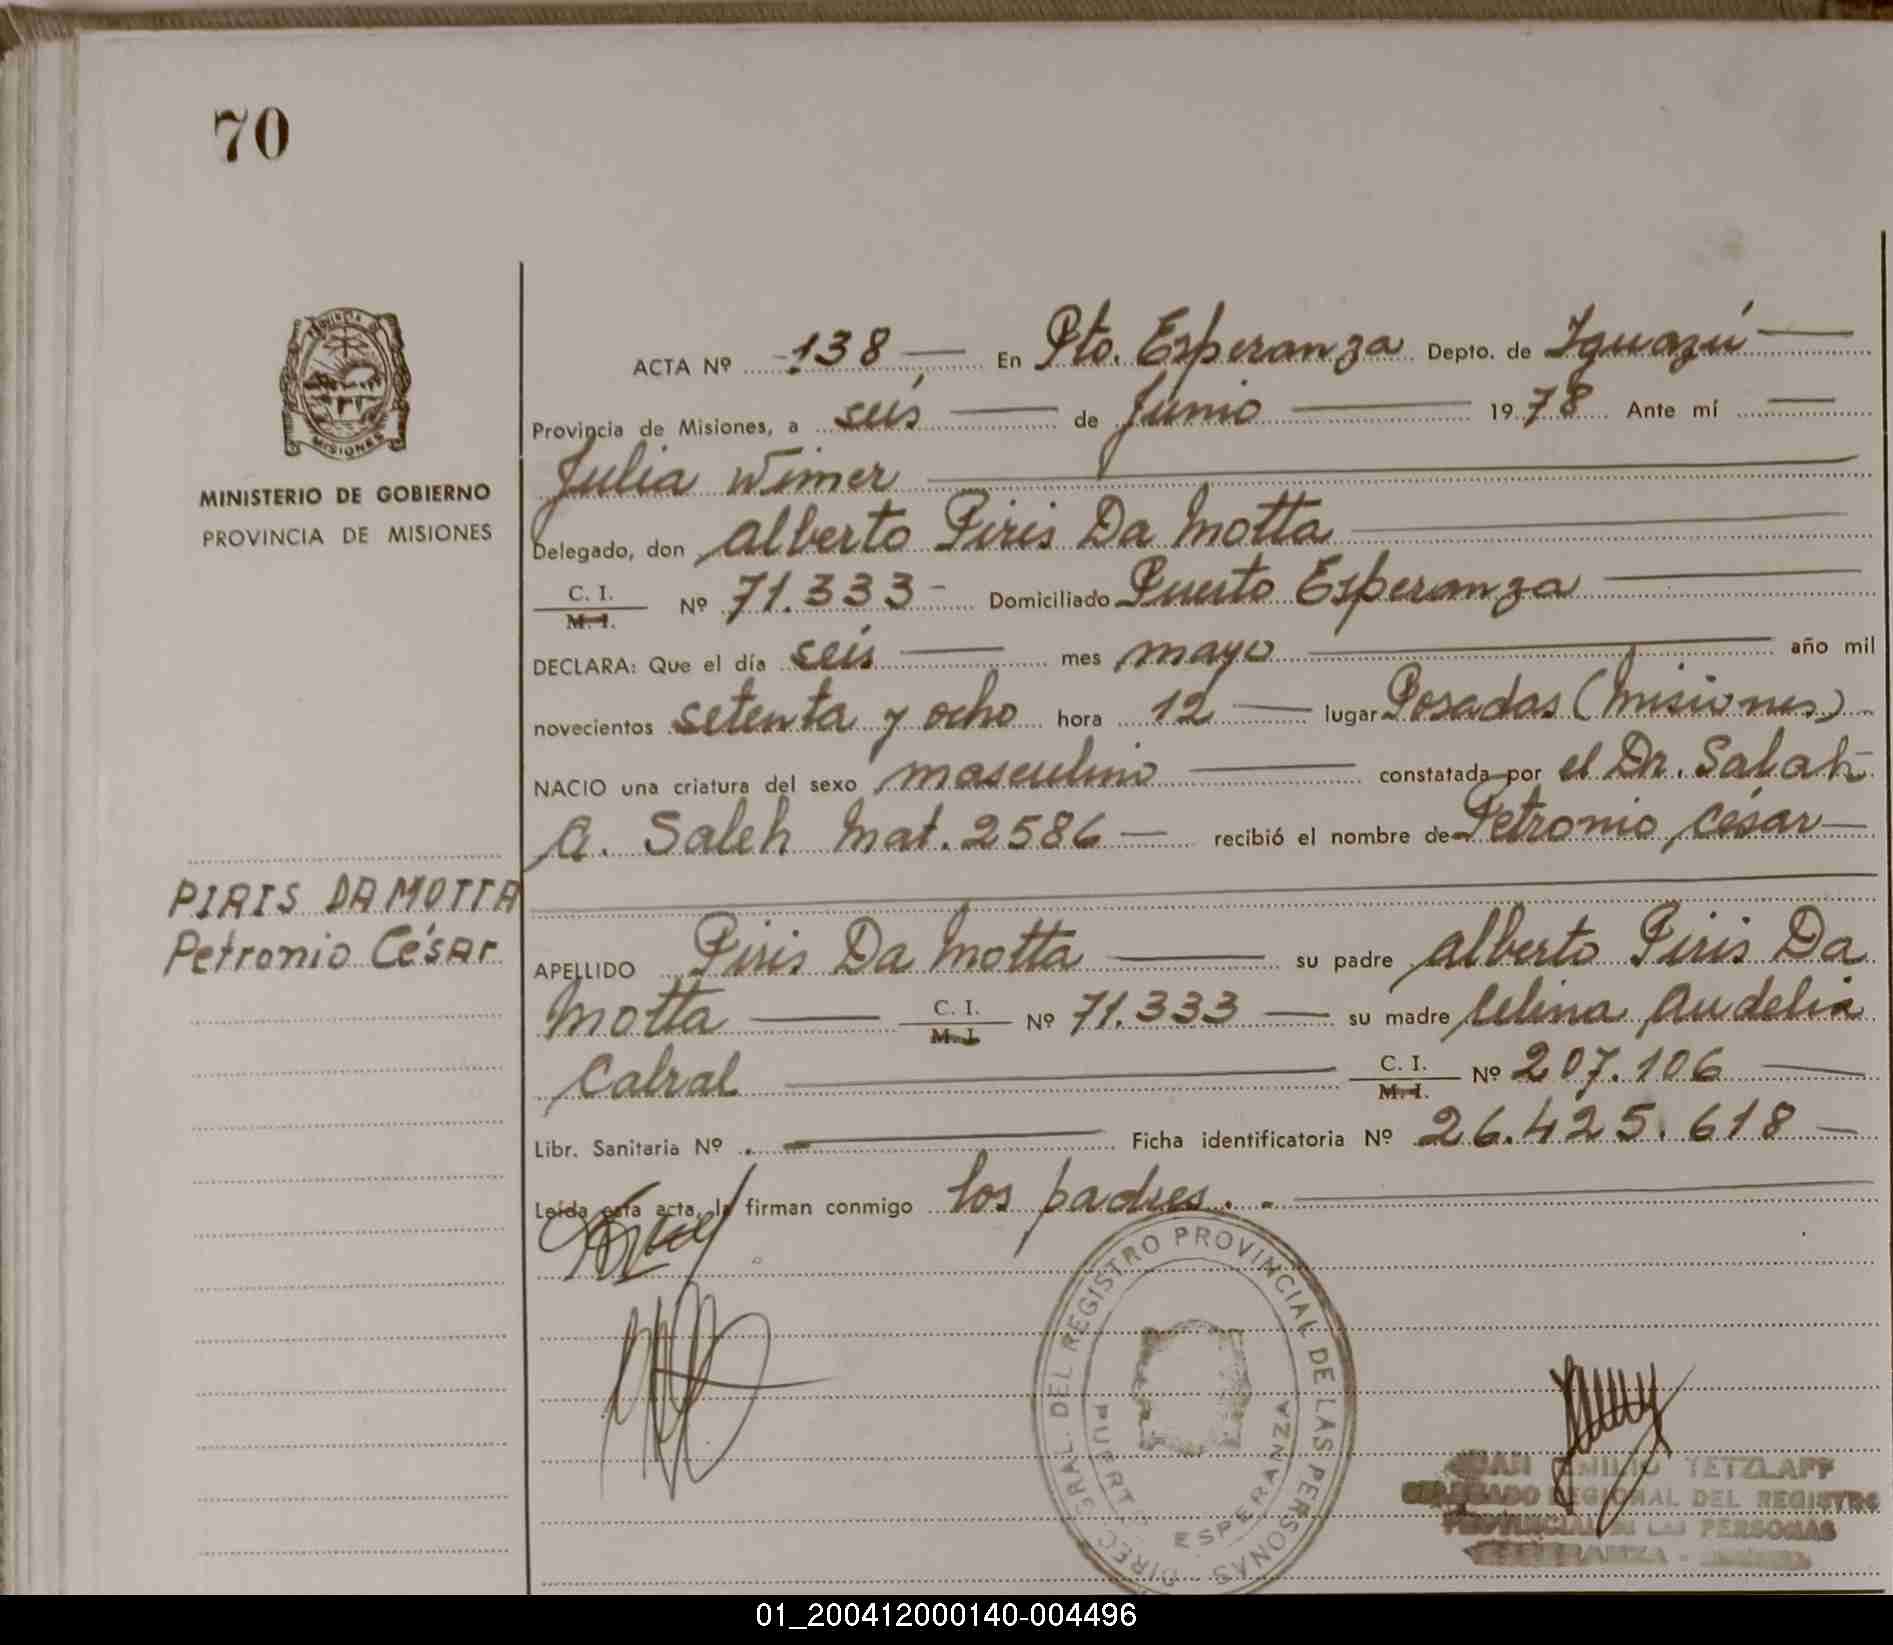 70
MINISTERIO DE GOBIERNO
PROVINCIA DE MISIONES
PIRIS DA MOTTA
Petronio César
ACTA Nº 138 En Pto. Esperanza Depto. de Iguazú
Provincia de Misiones, a seis de Junio 1978 Ante mí
Julia Wimer
Delegado, don Alberto Piris Da Motta
C. I.
M. I. Nº 71.333 Domiciliado Puerto Esperanza
DECLARA: Que el día seis mes mayo año mil
novecientos setenta y ocho hora 12 lugar Posadas (Misiones)
NACIO una criatura del sexo masculino constatada por el Dr. Salah
A. Saleh Mat. 2586 recibió el nombre de Petronio César
APELLIDO Piris Da Motta su padre Alberto Piris Da
Motta C. I. M. I. Nº 71.333 su madre Celina Audelia
Cabral C. I. M. I. Nº 207.106
Libr. Sanitaria Nº Ficha identificatoria Nº 26.425.618
Leída esta acta, la firman conmigo los padres.
DIREC. GRAL. DEL REGISTRO PROVINCIAL DE LAS PERSONAS
PUERTO ESPERANZA
EMILIO TETZLAFF
DELEGADO REGIONAL DEL REGISTRO
PROVINCIAL DE LAS PERSONAS
ESPERANZA -
01_200412000140-004496